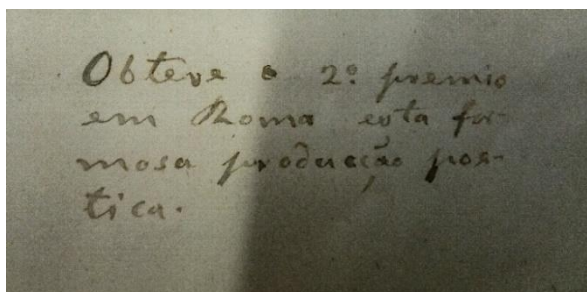 Obteve o 2º premio
em Roma esta for-
mosa producção poe-
tica.